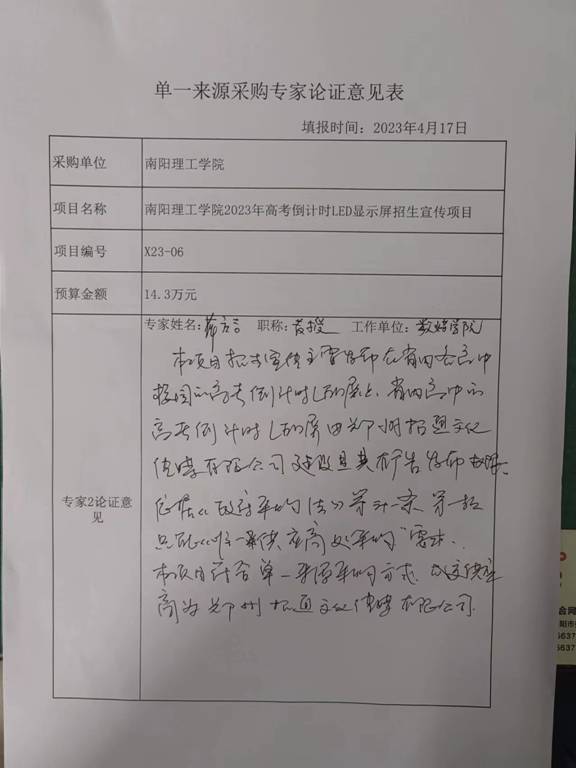 单一来源采购专家论证意见表
填报时间：2023年4月17日
采购单位 南阳理工学院
项目名称 南阳理工学院2023年高考倒计时LED显示屏招生宣传项目
项目编号 X23-06
预算金额 14.3万元
专家姓名: 职称: 教授 工作单位: 学院
专家2论证意见
本项目招生宣传主要发布在省内各高中
校园的高考倒计时LED屏上，省内高中的
高考倒计时LED屏由郑州 文化
传媒有限公司建设且其广告发布
依据《政府采购法》第三十一条 第一款
只能从唯一供应商处采购"要求．
本项目符合单一来源采购方式．成交供应
商为郑州 文化传媒有限公司．
合同
阳市
5637
5637